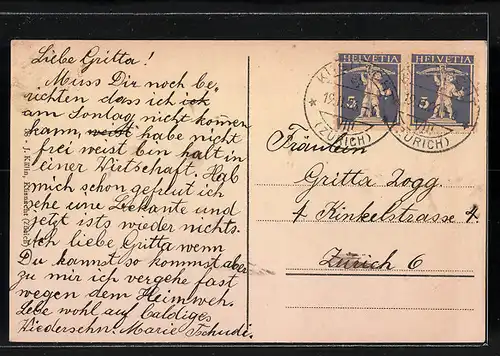 Liebe Gritta!
Muss Dir noch be,
richten dass ich ich
am Sontag nicht komen
kann, weist habe nicht
frei weist bin halt in
einer Wirtschaft. Hab
mich schon gefreut ich
sehe une Bekante und
jetzt ists wieder nichts.
Ich liebe Gritta wenn
Du kannst so kommst aber
zu mir ich vergehe fast
wegen dem Heimweh.
Lebe wohl auf baldiges
Wiedersehn. Marie Tschudi.
J. Kölla, Küsnacht (Zürich)
HELVETIA
5
HELVETIA
5
(ZÜRICH)
(ZÜRICH)
Fräulein
Gritta Zogg.
4 Kinkelstrasse 4.
Zürich 6